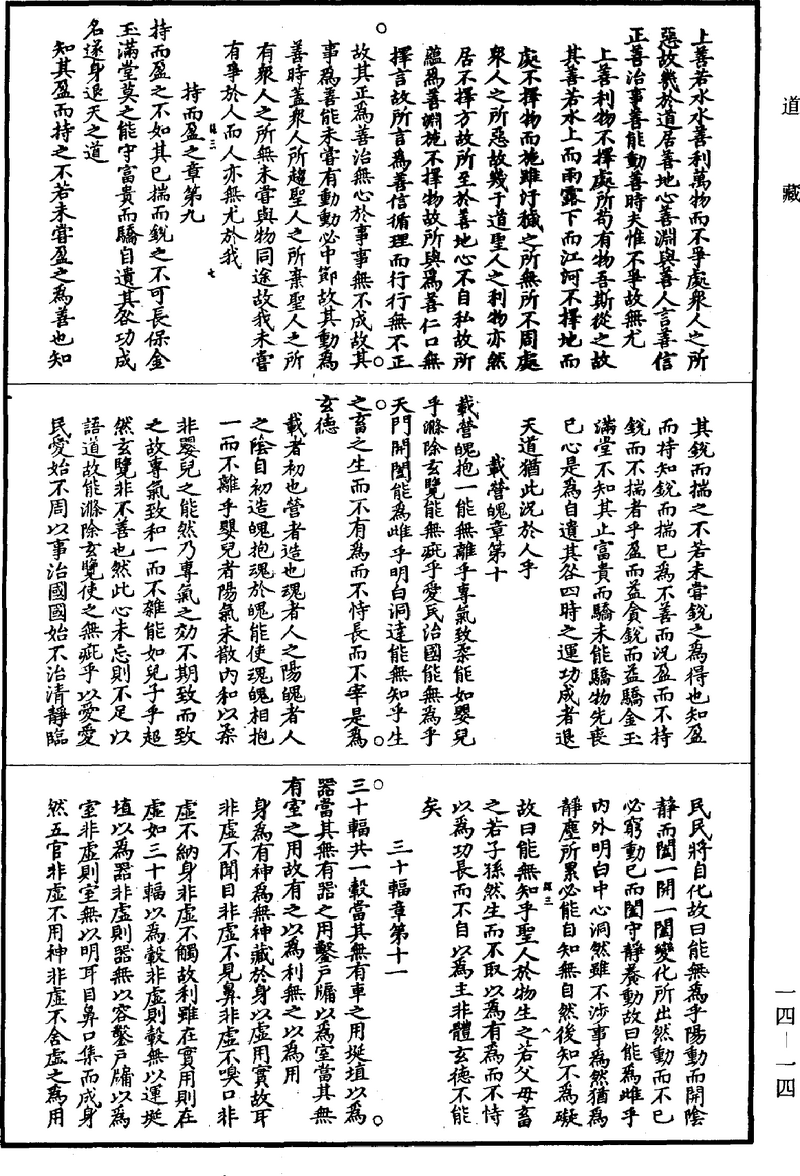 道藏
上善若水水善利萬物而不爭處衆人之所
惡故幾於道居善地心善淵與善人言善信
正善治事善能動善時夫惟不爭故無尤
上善利物不擇處所苟有物吾斯從之故
其善若水上而雨露下而江河不擇地而
處不擇物而施雖汙穢之所無所不周處
衆人之所惡故幾于道聖人之利物亦然
居不擇方故所至於善地心不自私故所
蘊爲善淵施不擇物故所與爲善仁口無
擇言故所言爲善信循理而行行無不正
故其正為善治無心於事事無不成故其
事為善能未甞有動動必中節故其動為
善時蓋衆人所趨聖人之所棄聖人之所
有衆人之所無未甞與物同途故我未甞
有爭於人而人亦無尤於我
持而盈之章第九
持而盈之不如其已揣而銳之不可長保金
玉滿堂莫之能守富貴而驕自遺其咎功成
名遂身退天之道
知其盈而持之不若未甞盈之為善也知
其銳而揣之不若未甞銳之為得也知盈
而持知銳而揣已為不善而況盈而不持
銳而不揣者乎盈而益貪銳而益驕金玉
滿堂不知其止富貴而驕未能驕物先喪
已心是為自遺其咎四時之運功成者退
天道猶此況於人乎
載營魄章第十
載營魄抱一能無離乎專氣致柔能如嬰兒
乎滌除玄覽能無疵乎愛民治國能無為乎
天門開闔能為雌乎明白洞達能無知乎生
之畜之生而不有為而不恃長而不宰是為
玄德
載者初也營者造也魂者人之陽魄者人
之陰自初造魄抱魂於魄能使魂魄相抱
一而不離乎嬰兒者陽氣未散內和以柔
非嬰兒之能然乃專氣之効不期致而致
之故專氣致和一而不雜能如兒子乎超
然玄覽非不善也然此心未忘則不足以
語道故能滌除玄覽使之無疵乎以愛愛
民愛始不周以事治國國始不治清靜臨
民民將自化故曰能無為乎陽動而開陰
靜而闔一開一闔變化所出然動而不已
必窮動已而闔守靜養動故曰能為雌乎
內外明白中心洞然雖不涉事為然猶為
靜塵所累必能自知無自然後知不為礙
故曰能無知乎聖人於物生之若父母畜
之若子孫然生而不取以為有為而不恃
以為功長而不自以為主非體玄德不能
矣
三十輻章第十一
三十輻共一轂當其無有車之用埏埴以為
器當其無有器之用鑿戶牖以為室當其無
有室之用故有之以為利無之以為用
身為有神為無神藏於身以虛用實故耳
非虛不聞目非虛不見鼻非虛不嗅口非
虛不納身非虛不觸故利雖在實用則在
虛如三十輻以為轂非虛則轂無以運埏
埴以為器非虛則器無以容鑿戶牖以為
室非虛則室無以明耳目鼻口集而成身
然五官非虛不用神非虛不舍虛之為用
一四—一四